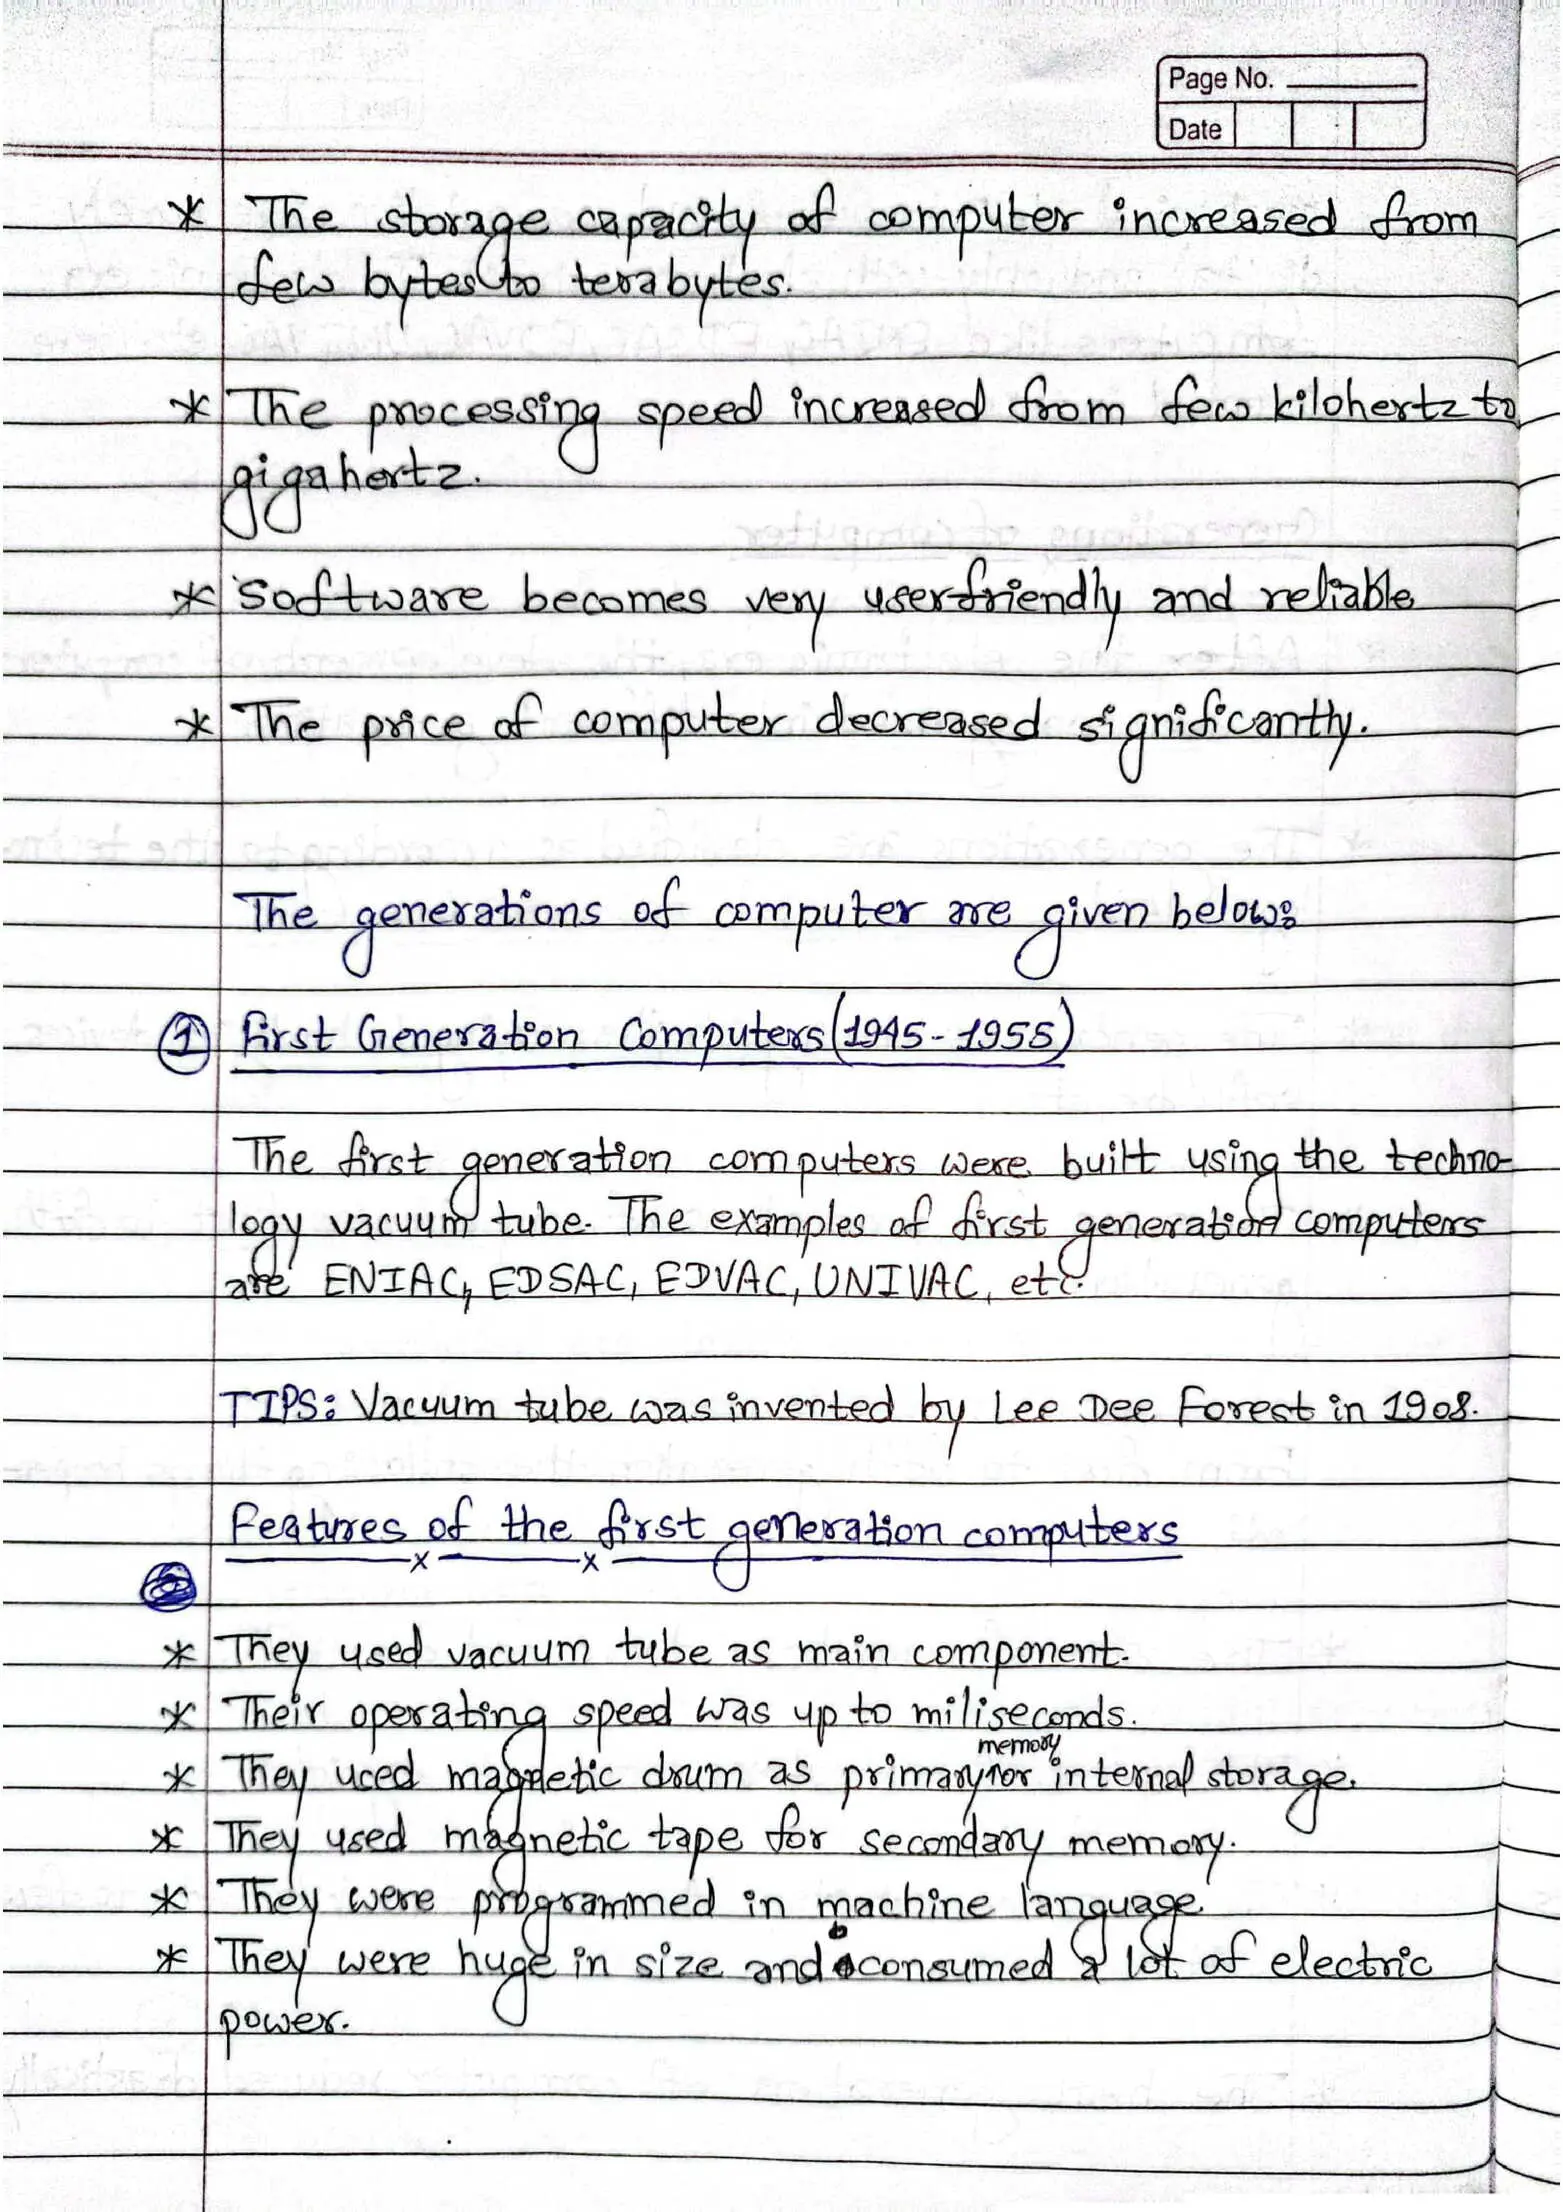 Page No.
Date
* The storage capacity of computer increased from
few bytes to terabytes.
* The processing speed increased from few kilohertz to
gigahertz.
* Software becomes very userfriendly and reliable
* The price of computer decreased significantly.
The generations of computer are given below:
1 First Generation Computers (1945-1955)
The first generation computers were built using the techno-
logy vacuum tube. The examples of first generation computers
are ENIAC, EDSAC, EDVAC, UNIVAC, etc.
TIPS: Vacuum tube was invented by Lee Dee Forest in 1908.
Features of the first generation computers
* They used vacuum tube as main component.
* Their operating speed was up to miliseconds.
memory
* They uced magnetic drum as primary or internal storage.
* They used magnetic tape for secondary memory.
* They were programmed in machine language.
* They were huge in size and consumed a lot of electric
power.